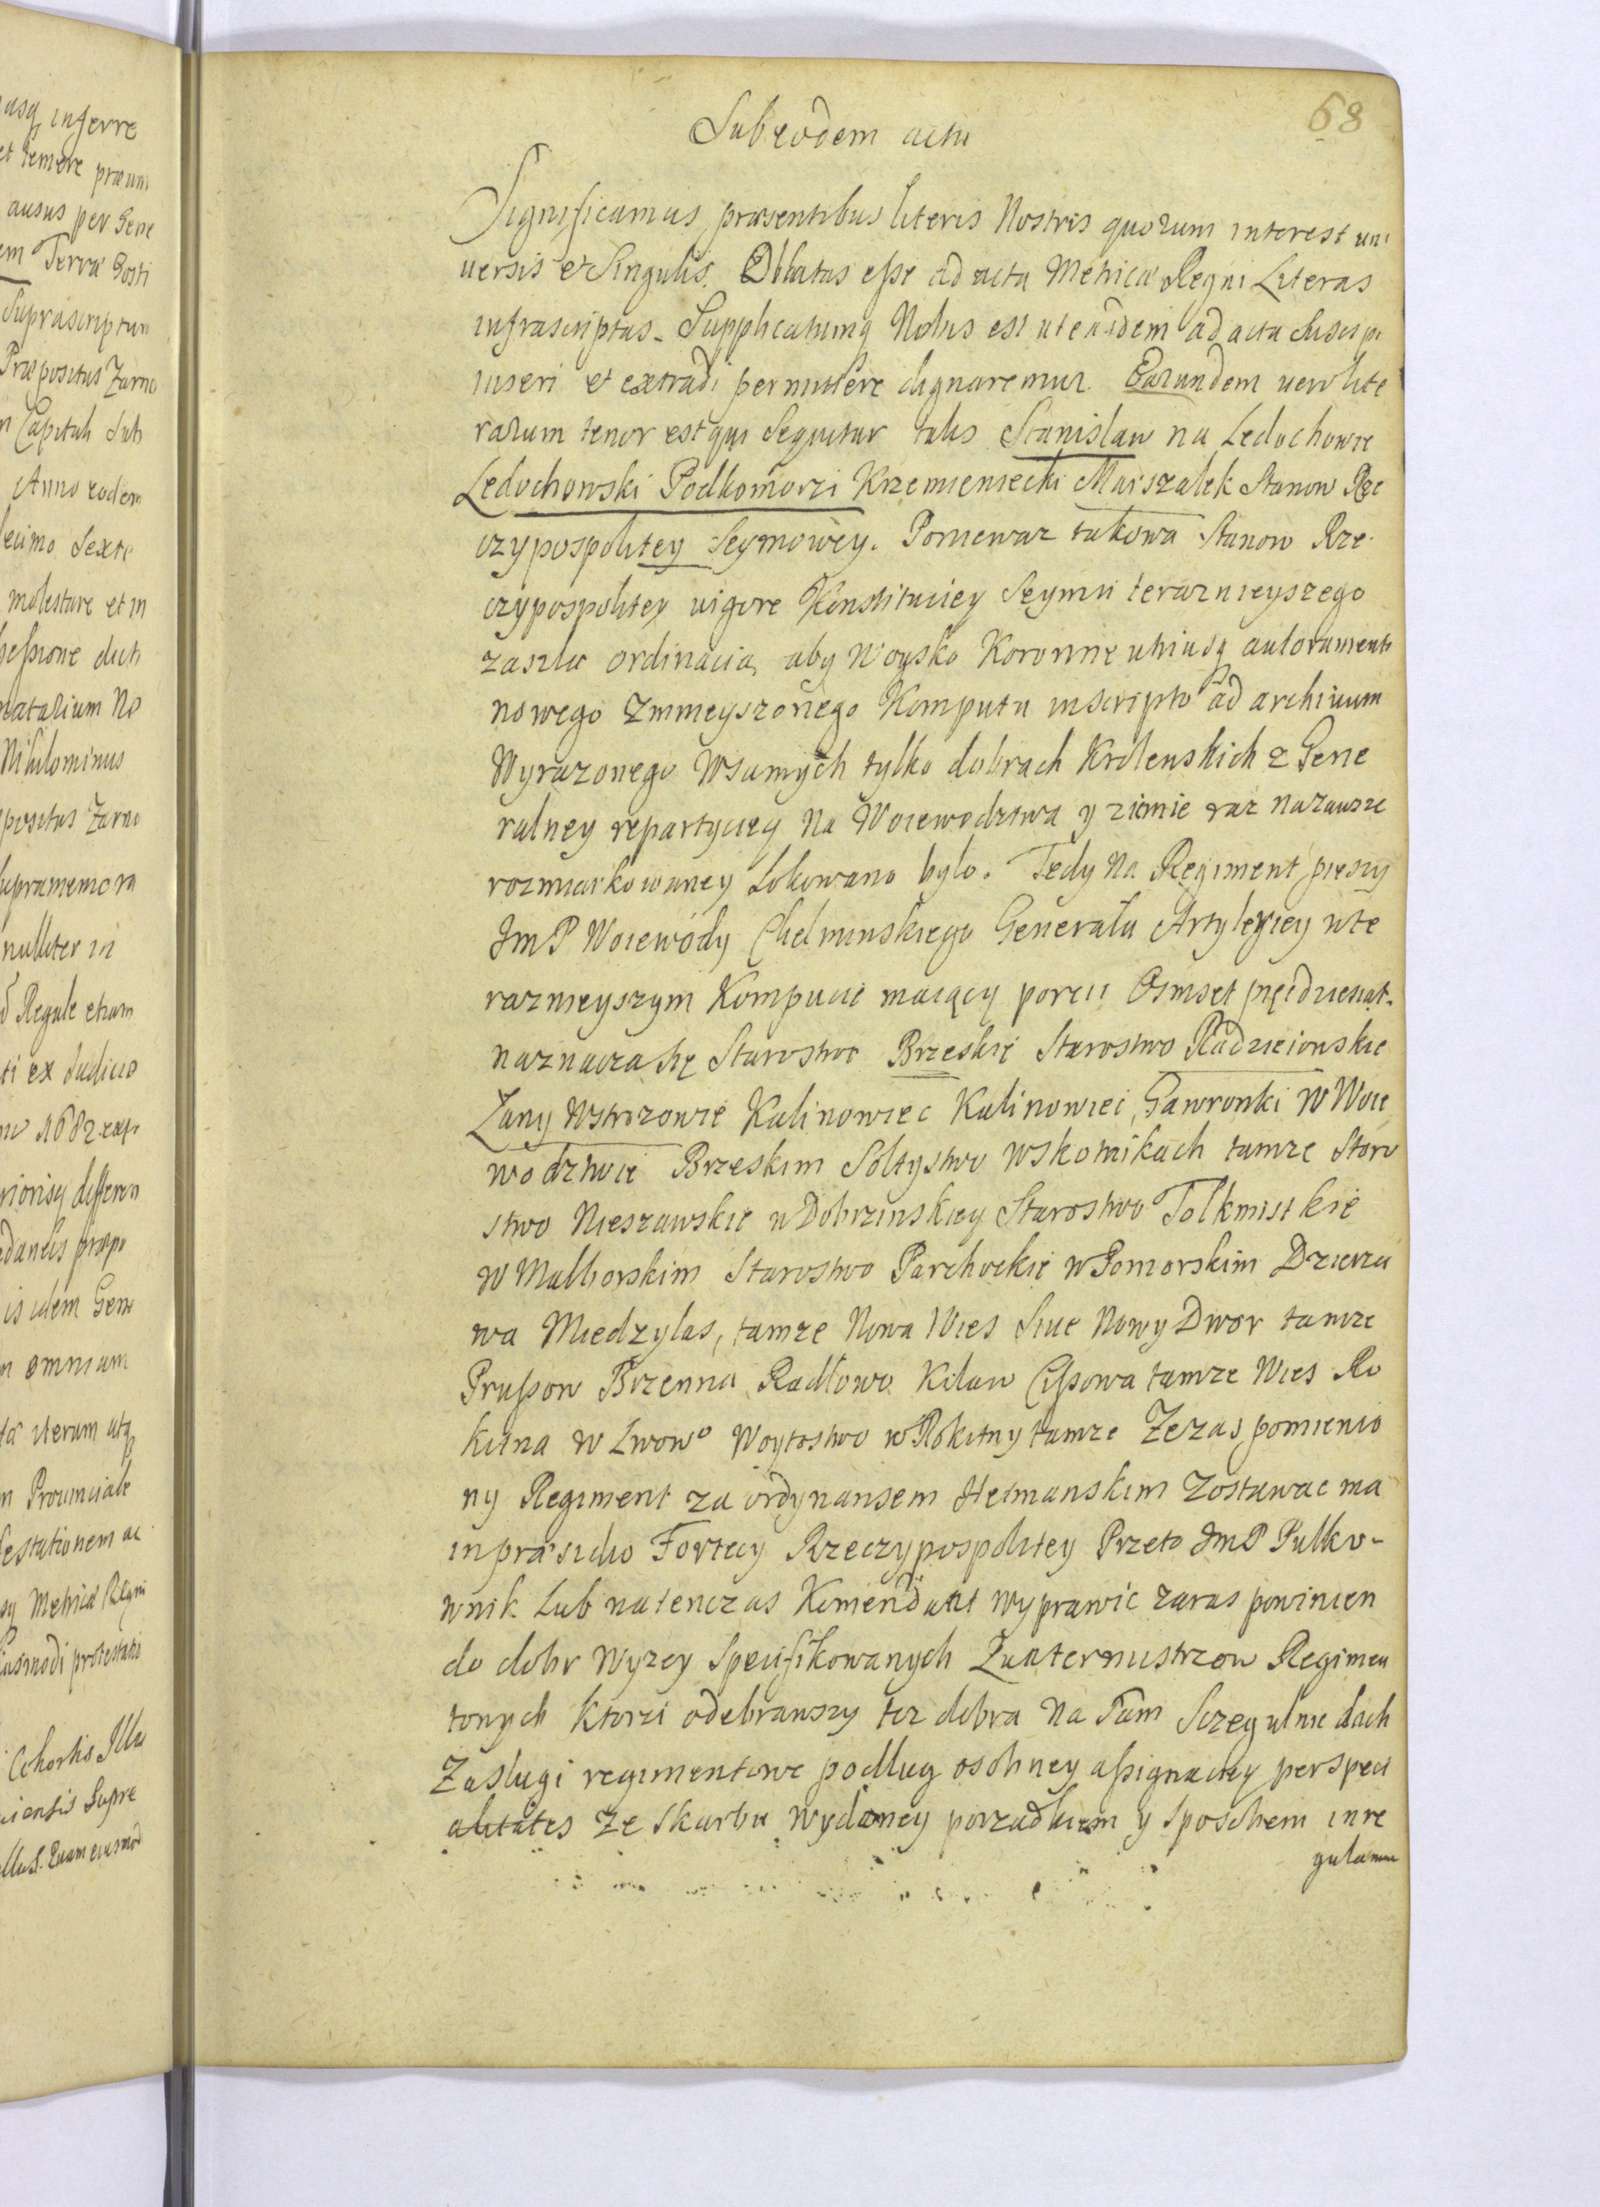 usq inferre
et temere præum
ausus per Gene
em Terræ Gosti
Suprascriptum
Præpositus Zarno
n Capituli Sub
Anno eodem
decimo Sexto
molestare et in
possione dicti
natarium No
Nihilominus
positus Zarno
supramemora
nulliter in
d Regule etiam
ti ex Judicio
nu 1682 exp
riorisq differen
danens præpo
is idem Gene
n omnium
ta iterum atq
m Prouinciale
festationem ac
sq Metrica Regni
iusmodi protestatio
Cohortis Illu
iensis Supre
llust. Quam eiusmod
68
Sub eodem actu
Significamus præsentibus literis Nostris quorum interest uni
uersis et Singulis. Oblatas eße ad acta Metricæ Regni Literas
infrascriptas. Supplicatumq Nobis est ut easdem ad acta Suscipi
inseri et extradi permittere dignaremur. Earundem uero lite
rarum tenor est qui Sequitur talis Stanislaw na Ledochowie
Ledochowski Podkomorzi Krzemieniecki Marszalek Stanow Rze
czypospolitey Seymowey. Poniewaz takowa Stanow Rze
czypospolitey uigore Konstituciey Seymu teraznieyszego
zaszla ordinacia, aby Woysko Koronne utriusq autoramenti
nowego Zmnieyszonego Komputu inscripto ad archiuum
Wyrazonego Wsamych tylko dobrach Krolenskich z Gene
ralney repartyciey Na Woiewodztwa y ziemie raz nazawsze
rozmiarkowaney Lokowano bylo. Tedy Na Regiment pieszy
JmP Woiewody Chelminskiego Generala Artyleryey wte
raznieyszym Kompucie maiący porcii Osmset pięcdziesiąt.
naznacza się Starostwo Brzeskie Starostwo Radzieiowskie
Lany Wstrzowie Kalinowiec Kalinowiec Gawronki W Woie
wodztwie Brzeskim Soltystwo Wskotnikach tamze Staro
stwo Nieszawskie w Dobrzinskiey Starostwo Tolkmistkie
w Malborskim Starostwo Parchockie w Pomorskim Dzierza
wa Miedzylas, tamze Nowa Wies Siue Nowy Dwor tamze
Prußow Brzenna Radlowo Kilaw Cißowa tamze Wies Ro
kitna w Lwowo Woytostwo w Rokitny tamze Ze zas pomienio
ny Regiment za ordynansem Hetmanskim zostawac ma
inpræsidio Fortecy Rzeczypospolitey Przeto JmP Pulko-
wnik Lub natenczas Komendant wyprawic zaras powinien
do dobr wyzey Specifikowanych Quatermistrzow Regimen
towych Ktorzi odebrawszy tez dobra na Sam Sczegulnie dach
Zaslugi regimentowe podlug osobney aßignaciey perspeci
alitates ze Skarbu wydaney porzadkiem y Sposobem inre
gulamen